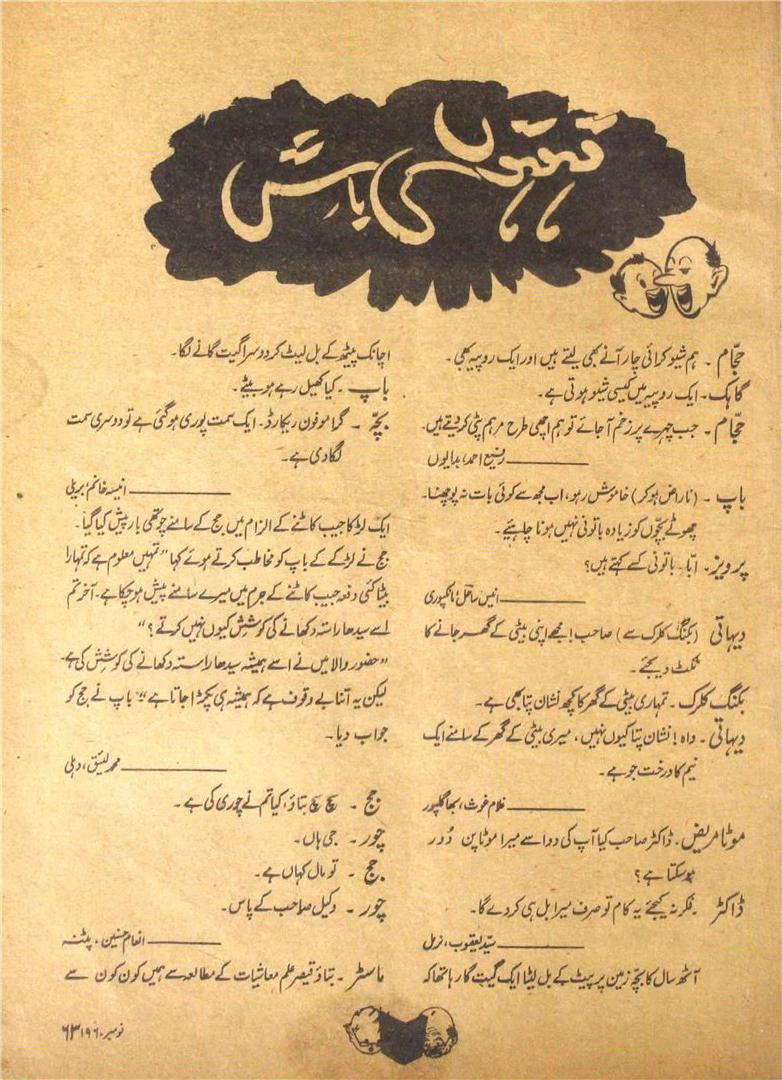 قہقہوں کی بارش
حجّام ۔ ہم شیو کرائی چار آنے بھی لیتے ہیں اور ایک روپیہ بھی ۔
گاہک ۔ ایک روپیہ میں کیسی شیو ہوتی ہے ۔
حجّام ۔ جب چہرے پر زخم آجائے تو ہم اچھی طرح مرہم پٹی کر دیتے ہیں ۔
رفیع احمد، بدایوں
باپ ۔ (ناراض ہو کر) خاموش رہو ، اب مجھ سے کوئی بات نہ پوچھنا ۔
چھوٹے بچّوں کو زیادہ باتونی نہیں ہونا چاہیئے ۔
پرویز ۔ ابّا ۔ باتونی کسے کہتے ہیں ؟
انیس ساحل، مانکپوری
دیہاتی (بکنگ کلرک سے) صاحب ! مجھے اپنی بیٹی کے گھر جانے کا
ٹکٹ دیجئے ۔
بکنگ کلرک ۔ تمہاری بیٹی کے گھر کا کچھ نشان پتا بھی ہے ۔
دیہاتی ۔ واہ ! نشان پتا کیوں نہیں ، میری بیٹی کے گھر کے سامنے ایک
نیم کا درخت جو ہے ۔
غلام غوث، بھاگلپور
موٹا مریض ۔ ڈاکٹر صاحب کیا آپ کی دوا سے میرا موٹا پن دُور
ہوسکتا ہے ؟
ڈاکٹر ۔ فکر نہ کیجئے یہ کام تو صرف میرا بل ہی کر دے گا ۔
سیّد یعقوب، نرمل
آٹھ سال کا بچہ زمین پر پیٹ کے بل لیٹا ایک گیت گا رہا تھا کہ
اچانک پیٹھ کے بل لیٹ کر دوسرا گیت گانے لگا ۔
باپ ۔ کیا کھیل رہے ہو بیٹے ۔
بچّہ ۔ گراموفون ریکارڈ ۔ ایک سمت پوری ہوگئی ہے تو دوسری سمت
لگا دی ہے ۔
انیسہ خانم، بریلی
ایک لڑکا جیب کاٹنے کے الزام میں جج کے سامنے چوتھی بار پیش کیا گیا ۔
جج نے لڑکے کے باپ کو مخاطب کرتے ہوئے کہا " تمہیں معلوم ہے کہ تمہارا
بیٹا کئی دفعہ جیب کاٹنے کے جرم میں میرے سامنے پیش ہو چکا ہے ۔ آخر تم
اسے سیدھا راستہ دکھانے کی کوشش کیوں نہیں کرتے ؟ "
" حضور والا میں نے اسے ہمیشہ سیدھا راستہ دکھانے کی کوشش کی ہے ۔
لیکن یہ اتنا بے وقوف ہے کہ ہمیشہ ہی پکڑا جاتا ہے " باپ نے جج کو
جواب دیا ۔
محمد لئیق، دہلی
جج ۔ سچ سچ بتاؤ ، کیا تم نے چوری کی ہے ۔
چور ۔ جی ہاں ۔
جج ۔ تو مال کہاں ہے ۔
چور ۔ وکیل صاحب کے پاس ۔
انعام حنین، پٹنہ
ماسٹر ۔ بتاؤ قیصر علم معاشیات کے مطالعہ سے ہمیں کون کون سے
نومبر ۱۹۶۰ ۶۳